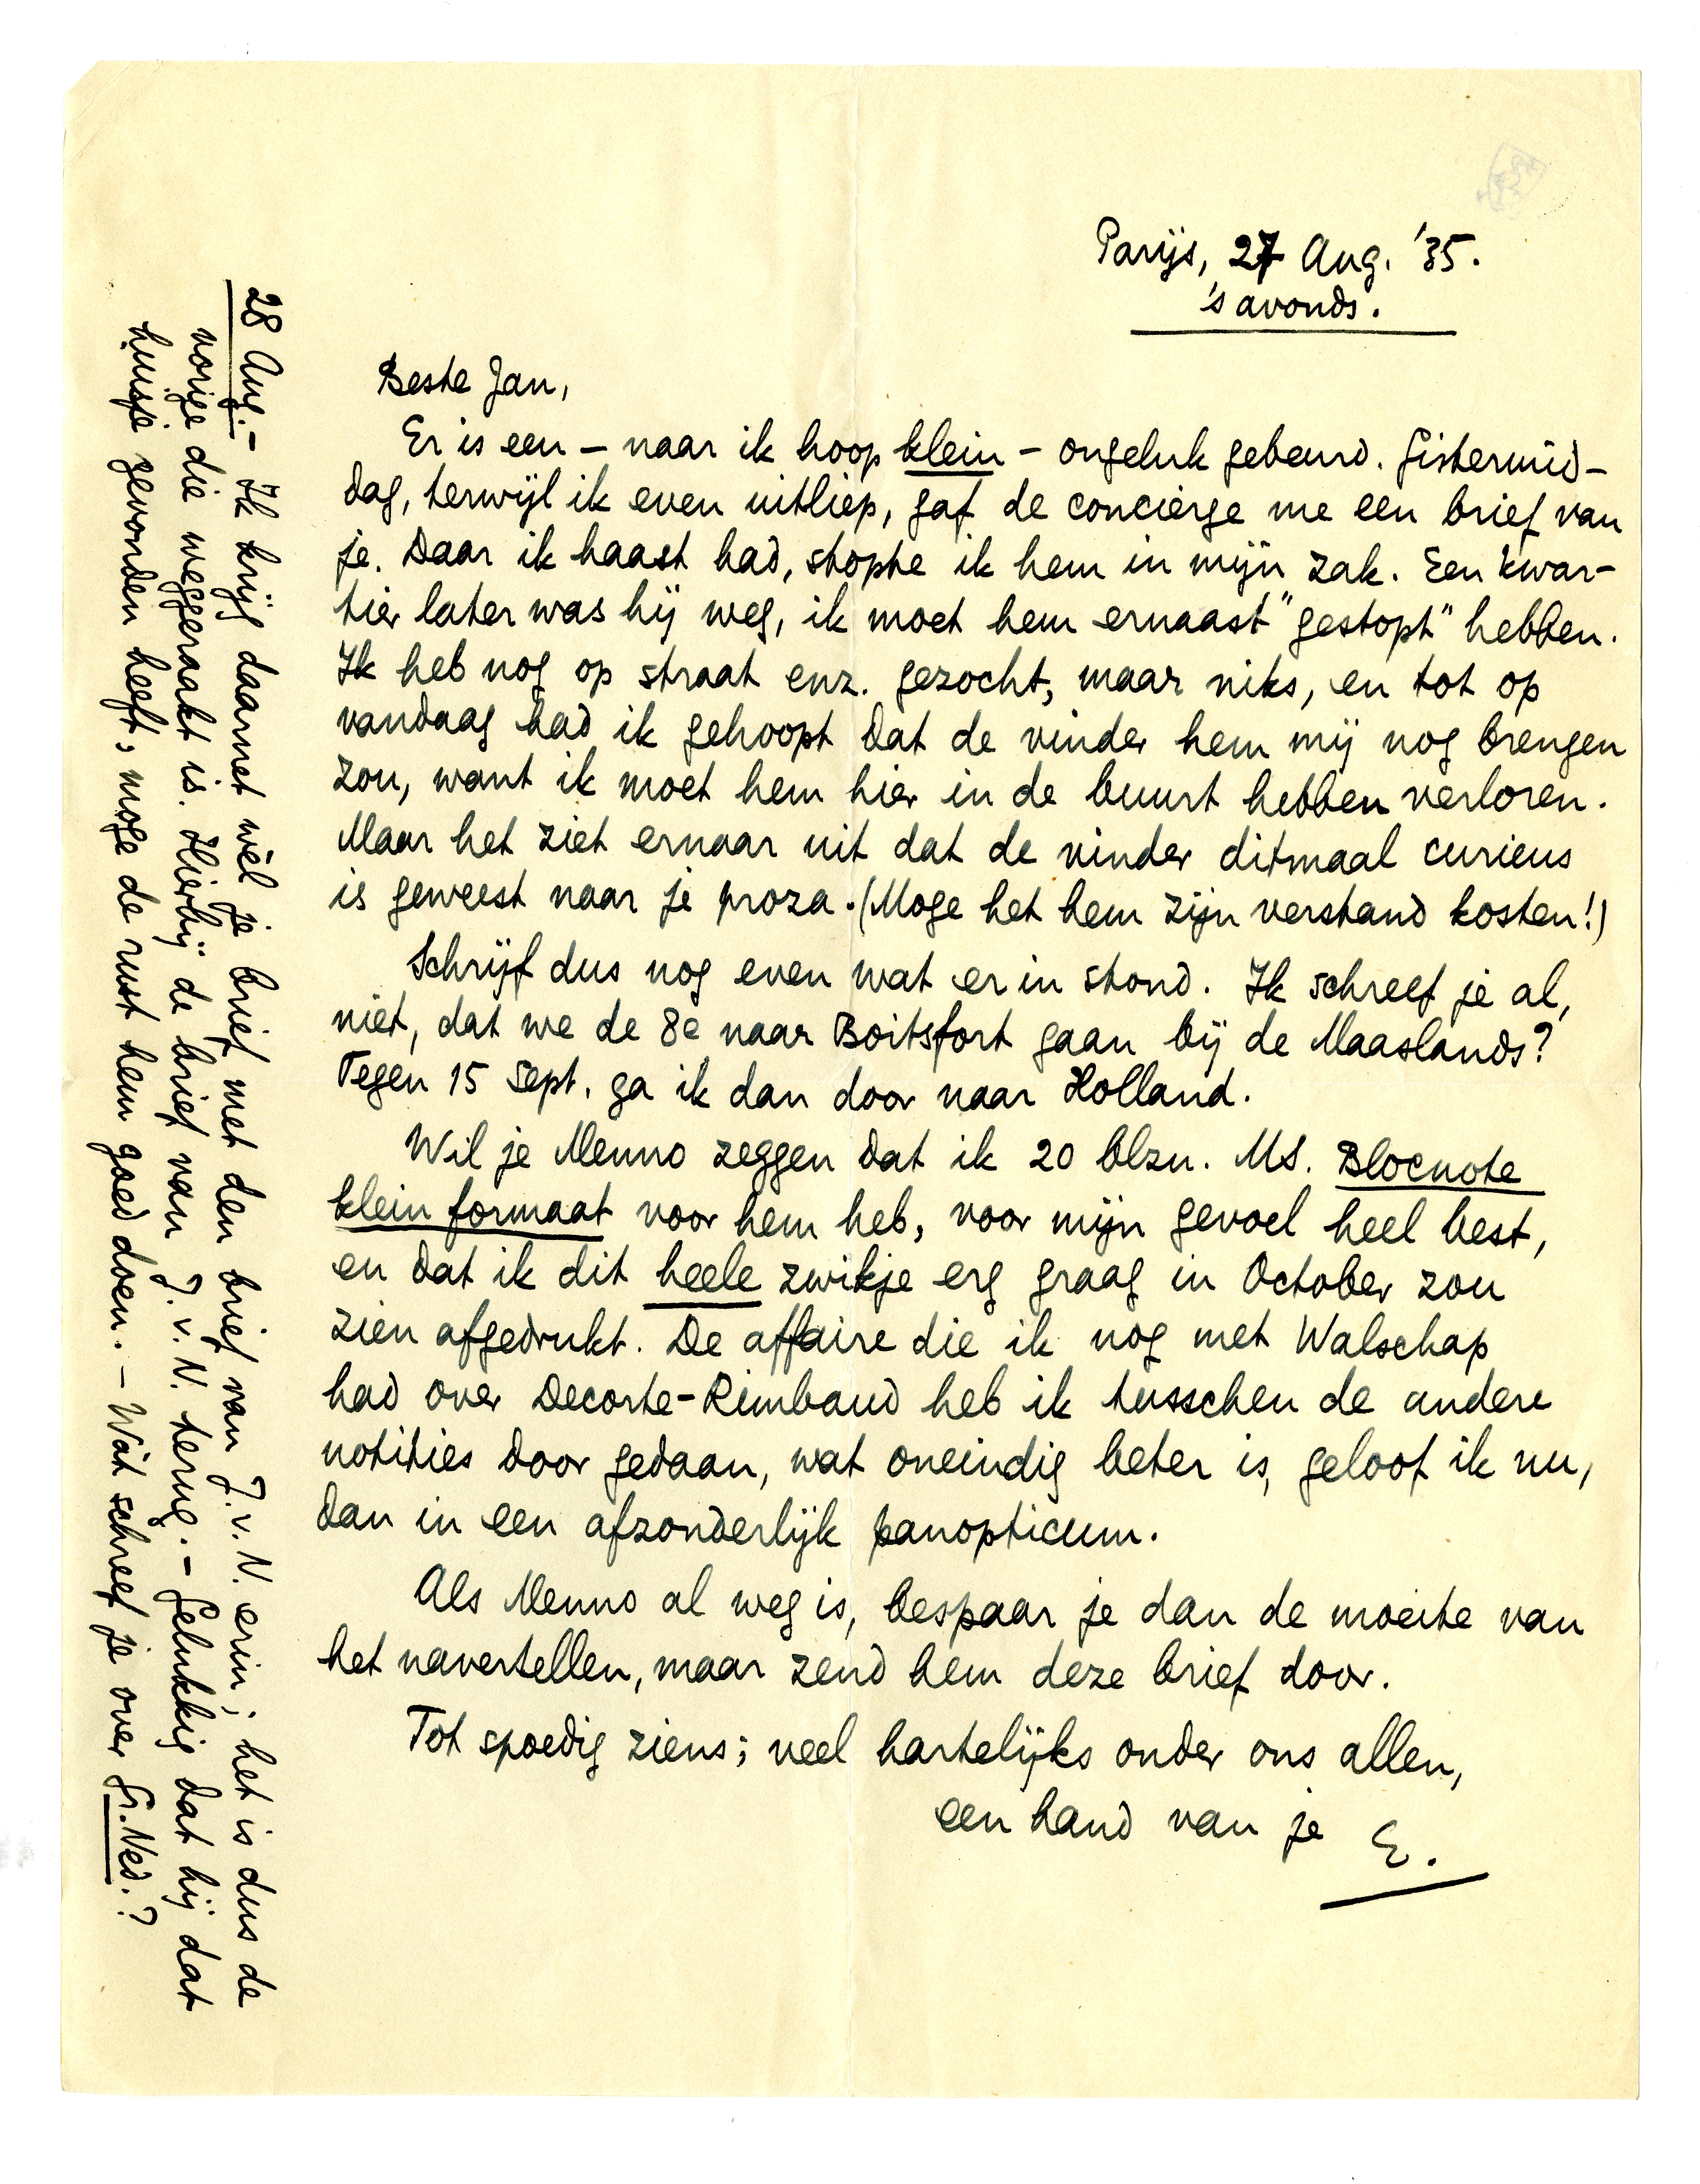 Parijs, 27 Aug. '35.
's avonds.
Beste Jan,
Er is een – naar ik hoop klein – ongeluk gebeurd. Gistermid-
dag, terwijl ik even uitliep, gaf de concierge me een brief van
je. Daar ik haast had, stopte ik hem in mijn zak. Een kwar-
tier later was hij weg, ik moet hem ernaast "gestopt" hebben.
Ik heb nog op straat enz. gezocht, maar niks, en tot op
vandaag had ik gehoopt dat de vinder hem mij nog brengen
zou, want ik moet hem hier in de buurt hebben verloren.
Maar het ziet ernaar uit dat de vinder ditmaal curieus
is geweest naar je proza. (Moge het hem zijn verstand kosten!)
Schrijf dus nog even wat er in stond. Ik schreef je al,
niet, dat we de 8e naar Boitsfort gaan bij de Maaslands?
Tegen 15 Sept. ga ik dan door naar Holland.
Wil je Menno zeggen dat ik 20 blzn. MS. Blocnote
klein formaat voor hem heb, voor mijn gevoel heel best,
en dat ik dit heele zwikje erg graag in October zou
zien afgedrukt. De affaire die ik nog met Walschap
had over Decorte-Rimbaud heb ik tusschen de andere
notities door gedaan, wat oneindig beter is, geloof ik nu,
dan in een afzonderlijk panopticum.
Als Menno al weg is, bespaar je dan de moeite van
het navertellen, maar zend hem deze brief door.
Tot spoedig ziens; veel hartelijks onder ons allen,
een hand van je E.
28 Aug. – Ik krijg daarnet wèl je brief met den brief van J. v. N. erin; het is dus de
vorige die weggeraakt is. Hierbij de brief van J. v. N. terug. – Gelukkig dat hij dat
huisje gevonden heeft; moge de rust hem goed doen. – Wat schreef je over Gr. Ned.?